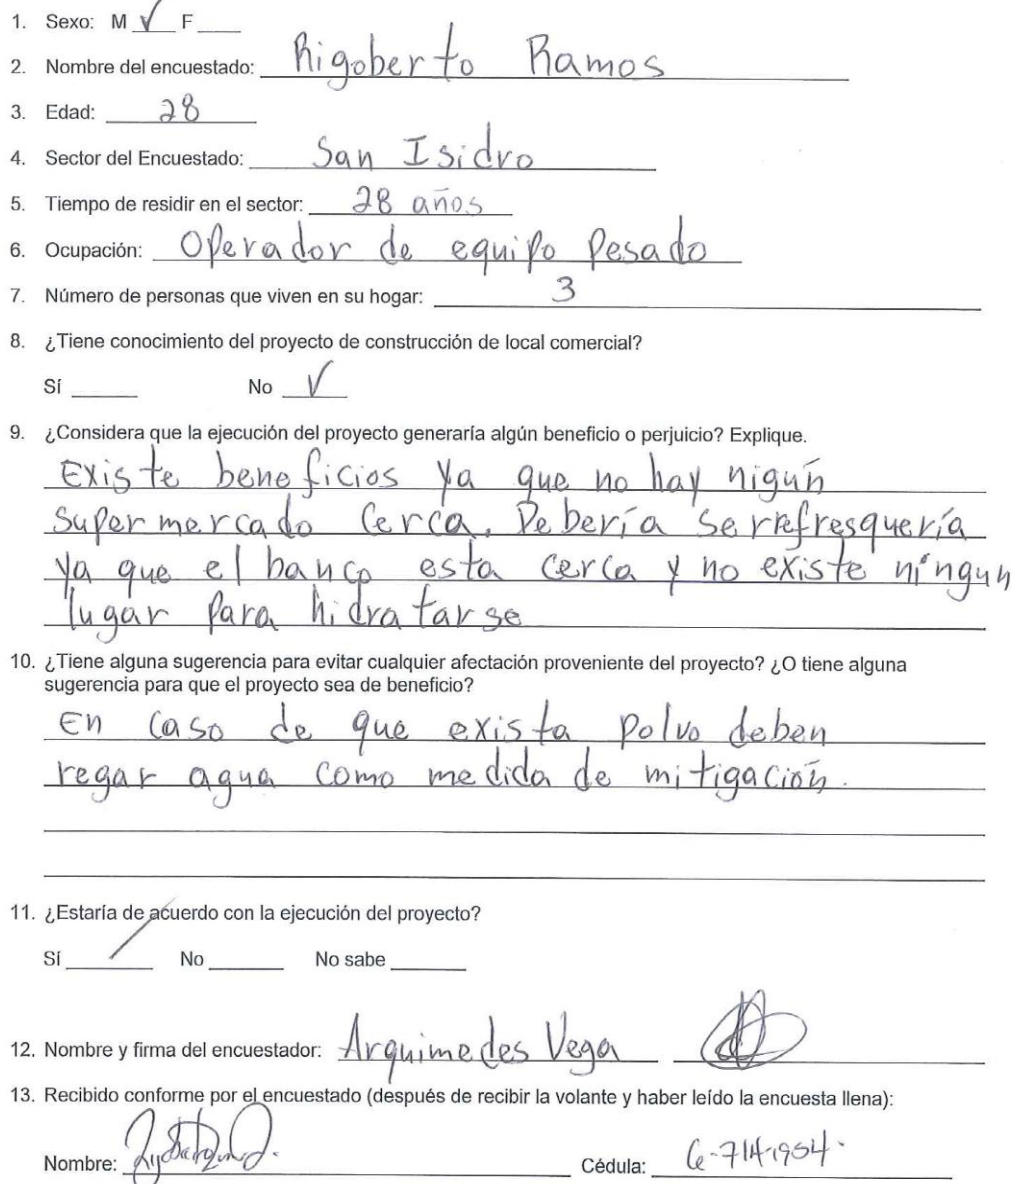 1. Sexo: M √ F
2. Nombre del encuestado: Rigoberto Ramos
3. Edad: 28
4. Sector del Encuestado: San Isidro
5. Tiempo de residir en el sector: 28 años
6. Ocupación: Operador de equipo Pesado
7. Número de personas que viven en su hogar: 3
8. ¿Tiene conocimiento del proyecto de construcción de local comercial?
Sí No √
9. ¿Considera que la ejecución del proyecto generaría algún beneficio o perjuicio? Explique.
Existe beneficios ya que no hay nigún
supermercado Cerca. Debería Ser refresquería
Ya que el banco esta cerca y no existe ningun
lugar para hidratarse
10. ¿Tiene alguna sugerencia para evitar cualquier afectación proveniente del proyecto? ¿O tiene alguna
sugerencia para que el proyecto sea de beneficio?
En caso de que exista Polvo deben
regar agua como medida de mitigación.
11. ¿Estaría de acuerdo con la ejecución del proyecto?
Sí / No No sabe
12. Nombre y firma del encuestador: Arquimedes Vega
13. Recibido conforme por el encuestado (después de recibir la volante y haber leído la encuesta llena):
Nombre: Cédula: 6-714-1954